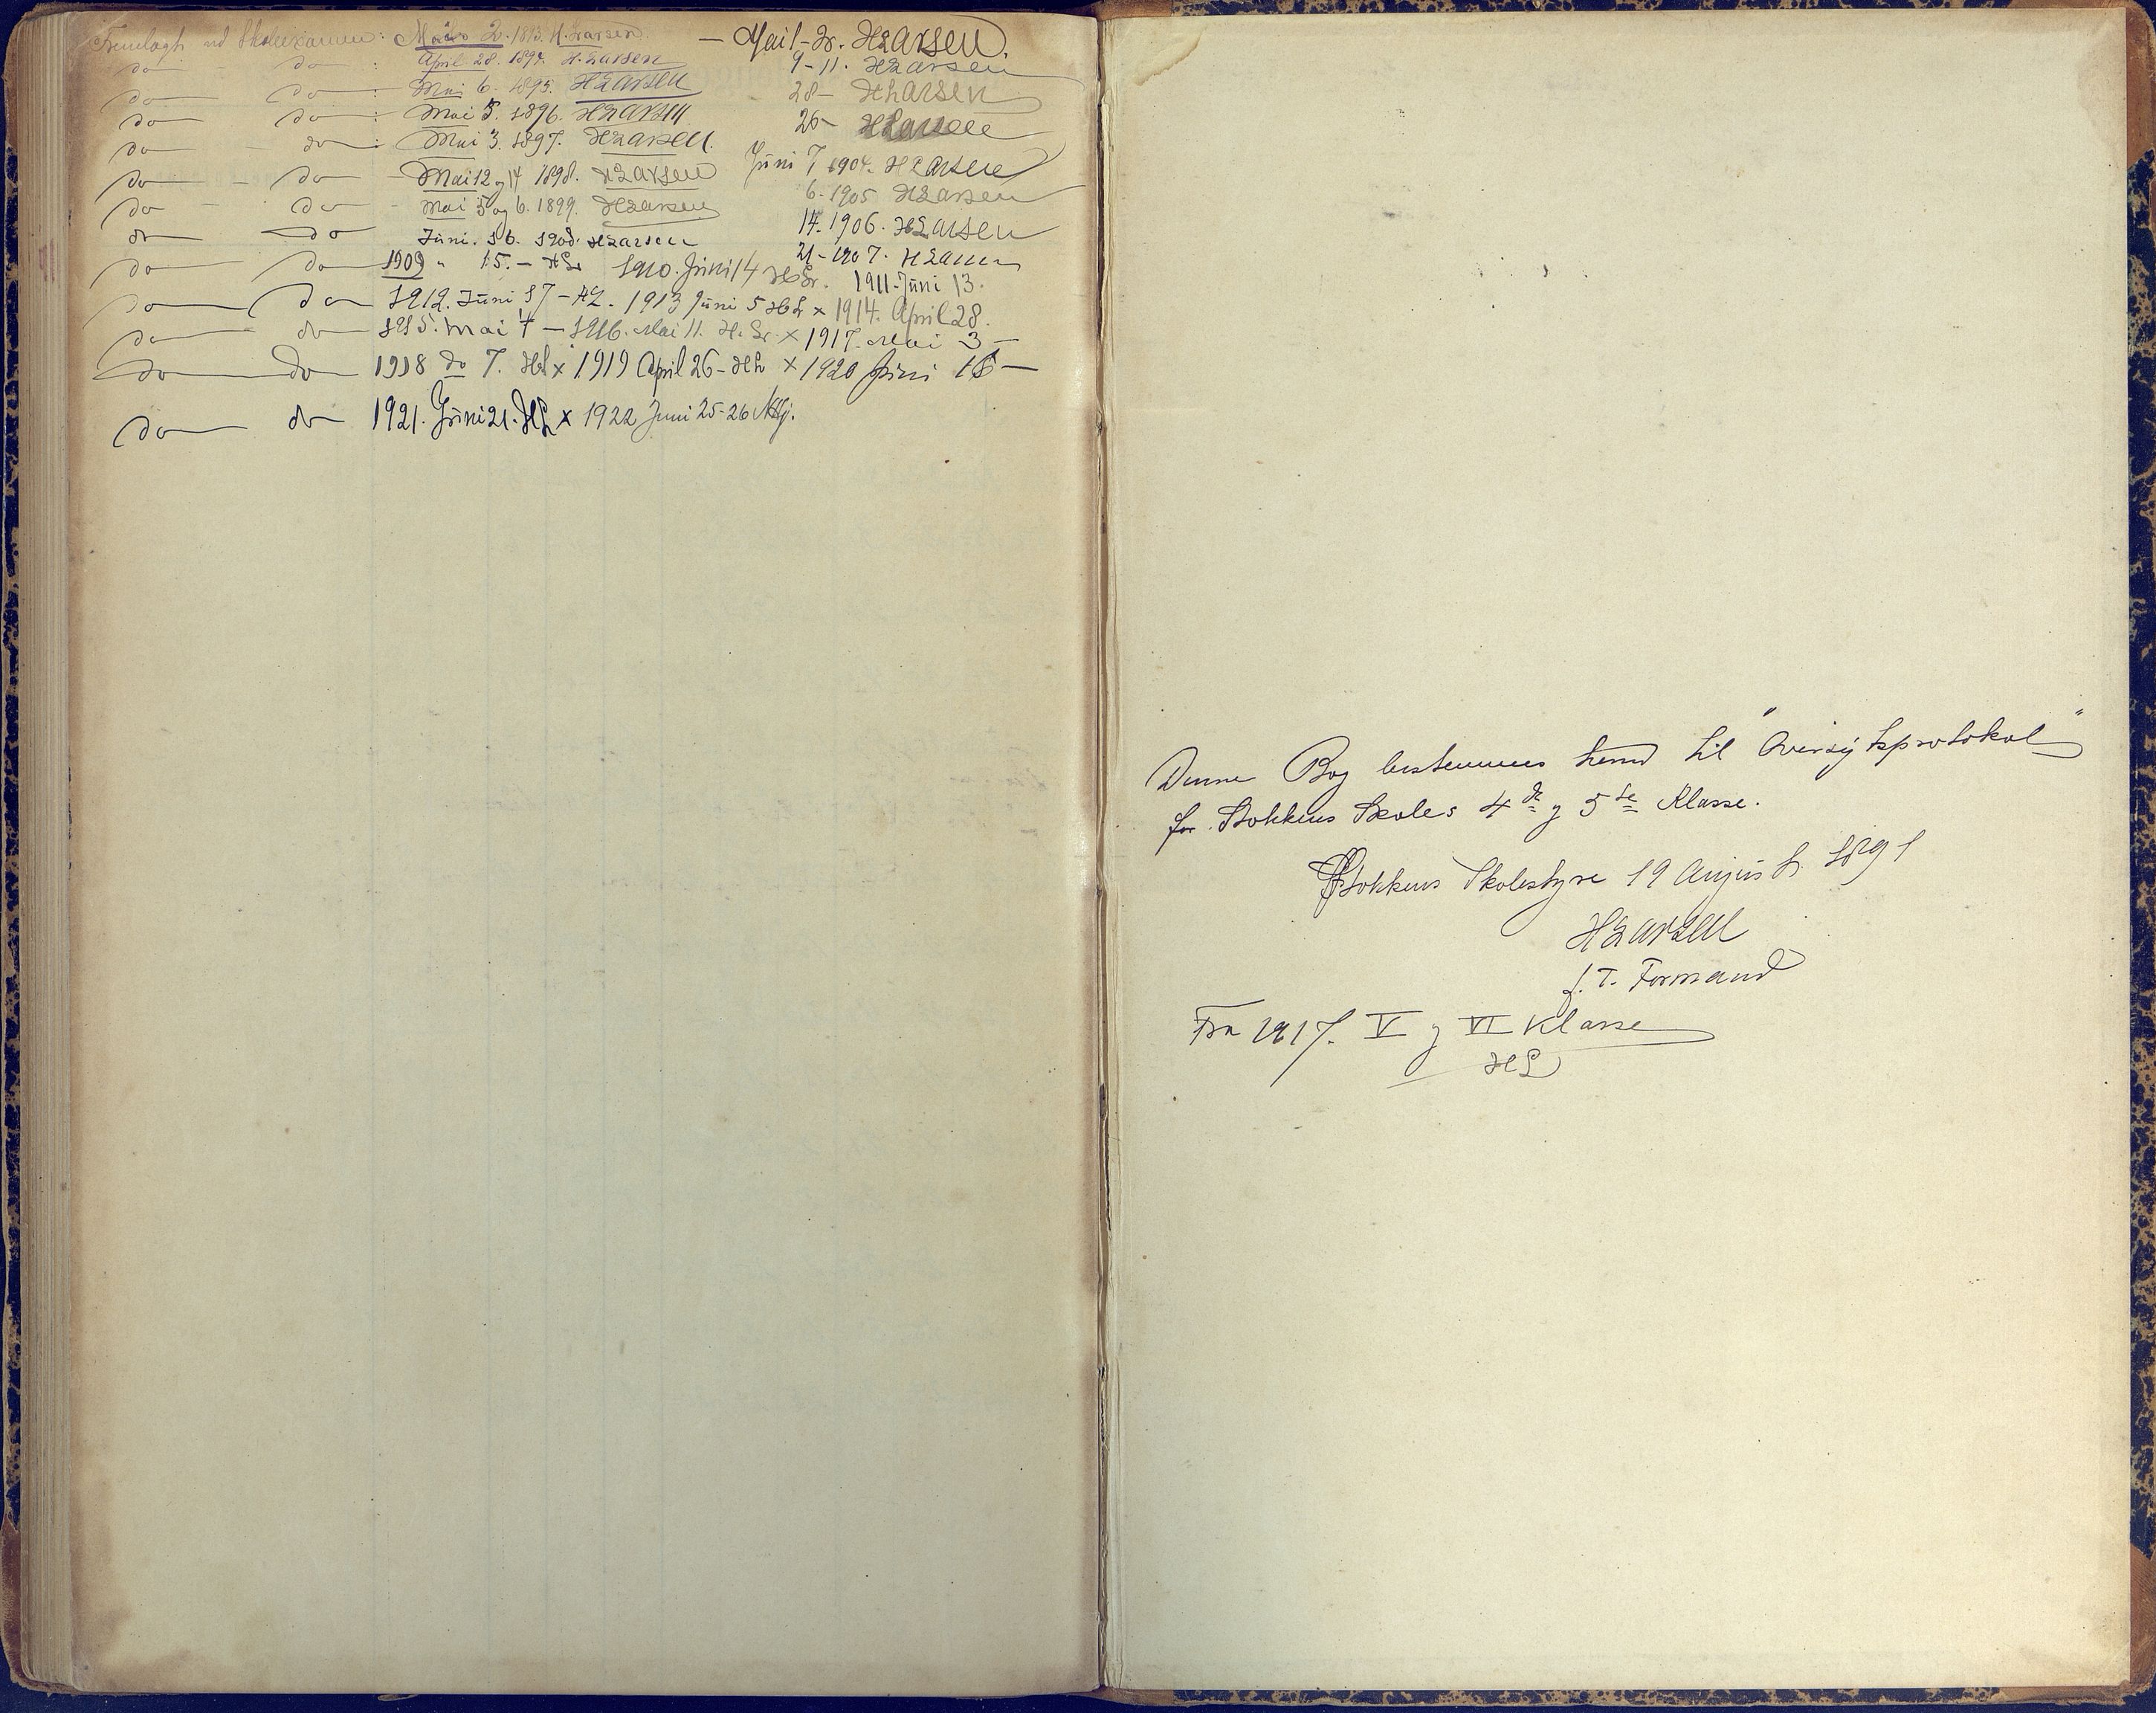 Fremlagt ved Skoleexamen: Marts 2. 1893. H. Larsen
do — do : April 28. 1894. H. Larsen
do — do : Mai 6. 1895. HLarsen
do — do : Mai 5. 1896. HLarsen
do — do : Mai 3. 1897. HLarsen.
do — do — Mai 12 og 14 1898. HLarsen
do — do — Mai 5 og 6. 1899. HLarsen
— HLarsen.
9-11. HLarsen
28- HLarsen
26- HLarsen
Juni 7 1904. HLarsen
6. 1905 HLarsen
14. 1906. HLarsen
21-1907. HLarsen
do do Juni. 16. 1908. HLarsen
do do 1909 " 15. — HLr 1910. Juni 14 HLr. 1911. Juni 13.
do do 1912. Juni 17 - HL. 1913 Juni 5 HL x 1914. April 28.
do do 1915. Mai 4 — 1916. Mai 11. H. Lr. x 1917. Mai 3 —
do do 1918 do 7. HL x 1919 April 26 - HL x 1920 Juni 16 —
do do 1921. Juni 21. HL x 1922 Juni 25-26
Denne Bog bestemmes herved til "Oversigtsprotokol"
for Stokkens Skoles 4de og 5te Klasse.
Stokkens Skolestyre 19 August 1891
HLarsen
f. T. Formand
Fra 1917. V og VI Klasse
HL